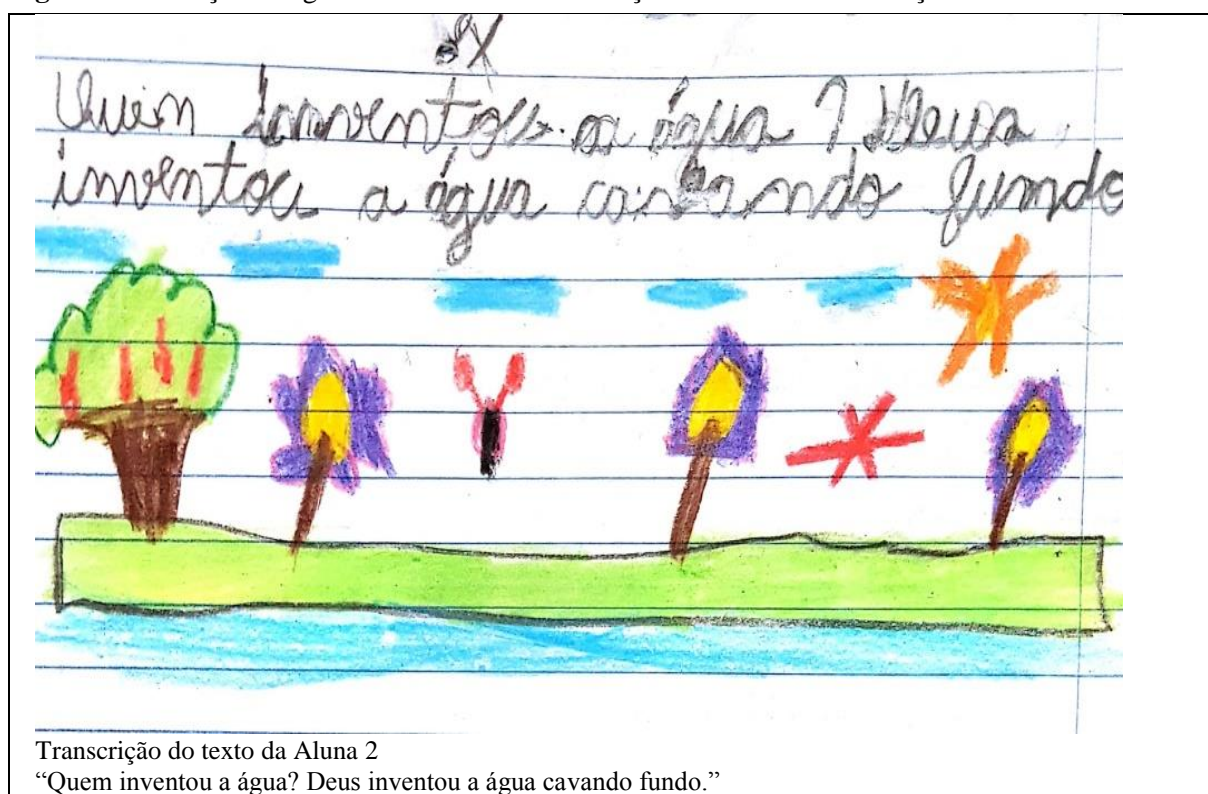 Quem inventou a água? Deus
inventou a água cavando fundo
Transcrição do texto da Aluna 2
“Quem inventou a água? Deus inventou a água cavando fundo.”